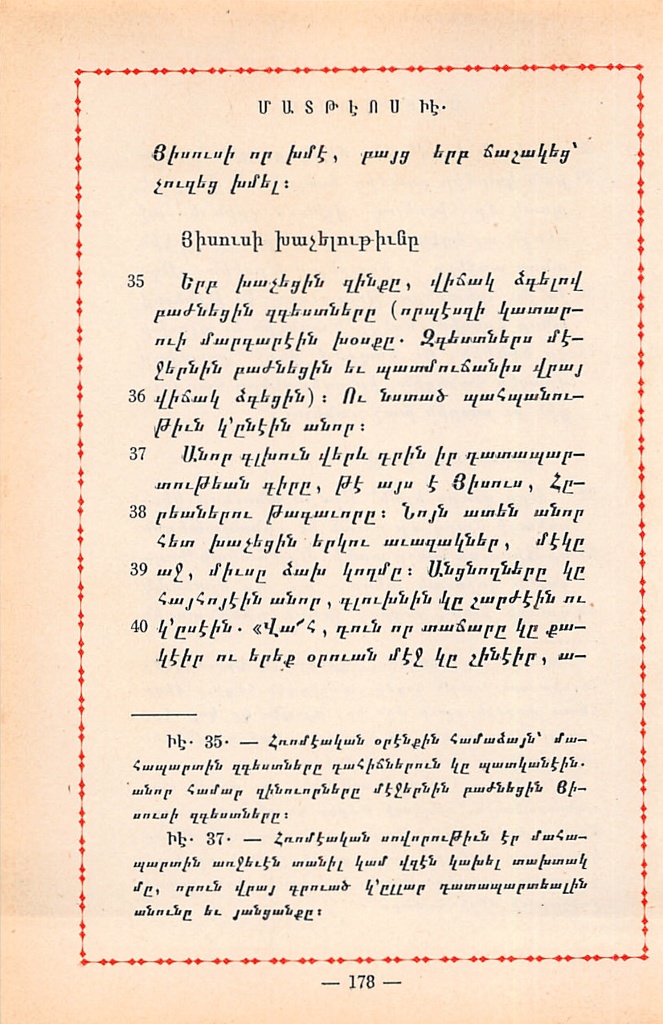 ՄԱՏԹԷՈՍ ԻԷ․
Յիսուսի որ խմէ, բայց երբ ճաշակեց՝
չուզեց խմել։
Յիսուսի խաչելութիւնը
35 Երբ խաչեցին զինքը, վիճակ ձգելով
բաժնեցին զգեստները (որպէսզի կատար-
ուի մարգարէին խօսքը․ Զգեստներս մէ-
ջերնին բաժնեցին եւ պատմուճանիս վրայ
36 վիճակ ձգեցին)։ Ու նստած պահպանու-
թիւն կ՚ընէին անոր։
37 Անոր գլխուն վերև դրին իր դատապար-
տութեան գիրը, թէ այս է Յիսուս, Հը-
38 րեաներու թագաւորը։ Նոյն ատեն անոր
հետ խաչեցին երկու աւազակներ, մէկը
39 աջ, միւսը ձախ կողմը։ Անցնողները կը
հայհոյէին անոր, գլուխնին կը շարժէին ու
40 կ՚ըսէին․ «Վա՜հ, դուն որ տաճարը կը քա-
կէիր ու երեք օրուան մէջ կը շինէիր, ա-
ԻԷ․ 35․ — Հռոմէական օրէնքին համաձայն՝ մա-
հապարտին զգեստները դահիճներուն կը պատկանէին․
անոր համար զինուորները մէջերնին բաժնեցին Յի-
սուսի զգեստները։
ԻԷ․ 37․ — Հռոմէական սովորութիւն էր մահա-
պարտին առջեւէն տանիլ կամ վզէն կախել տախտակ
մը, որուն վրայ գրուած կ՚ըլլար դատապարտեալին
անունը եւ յանցանքը։
— 178 —